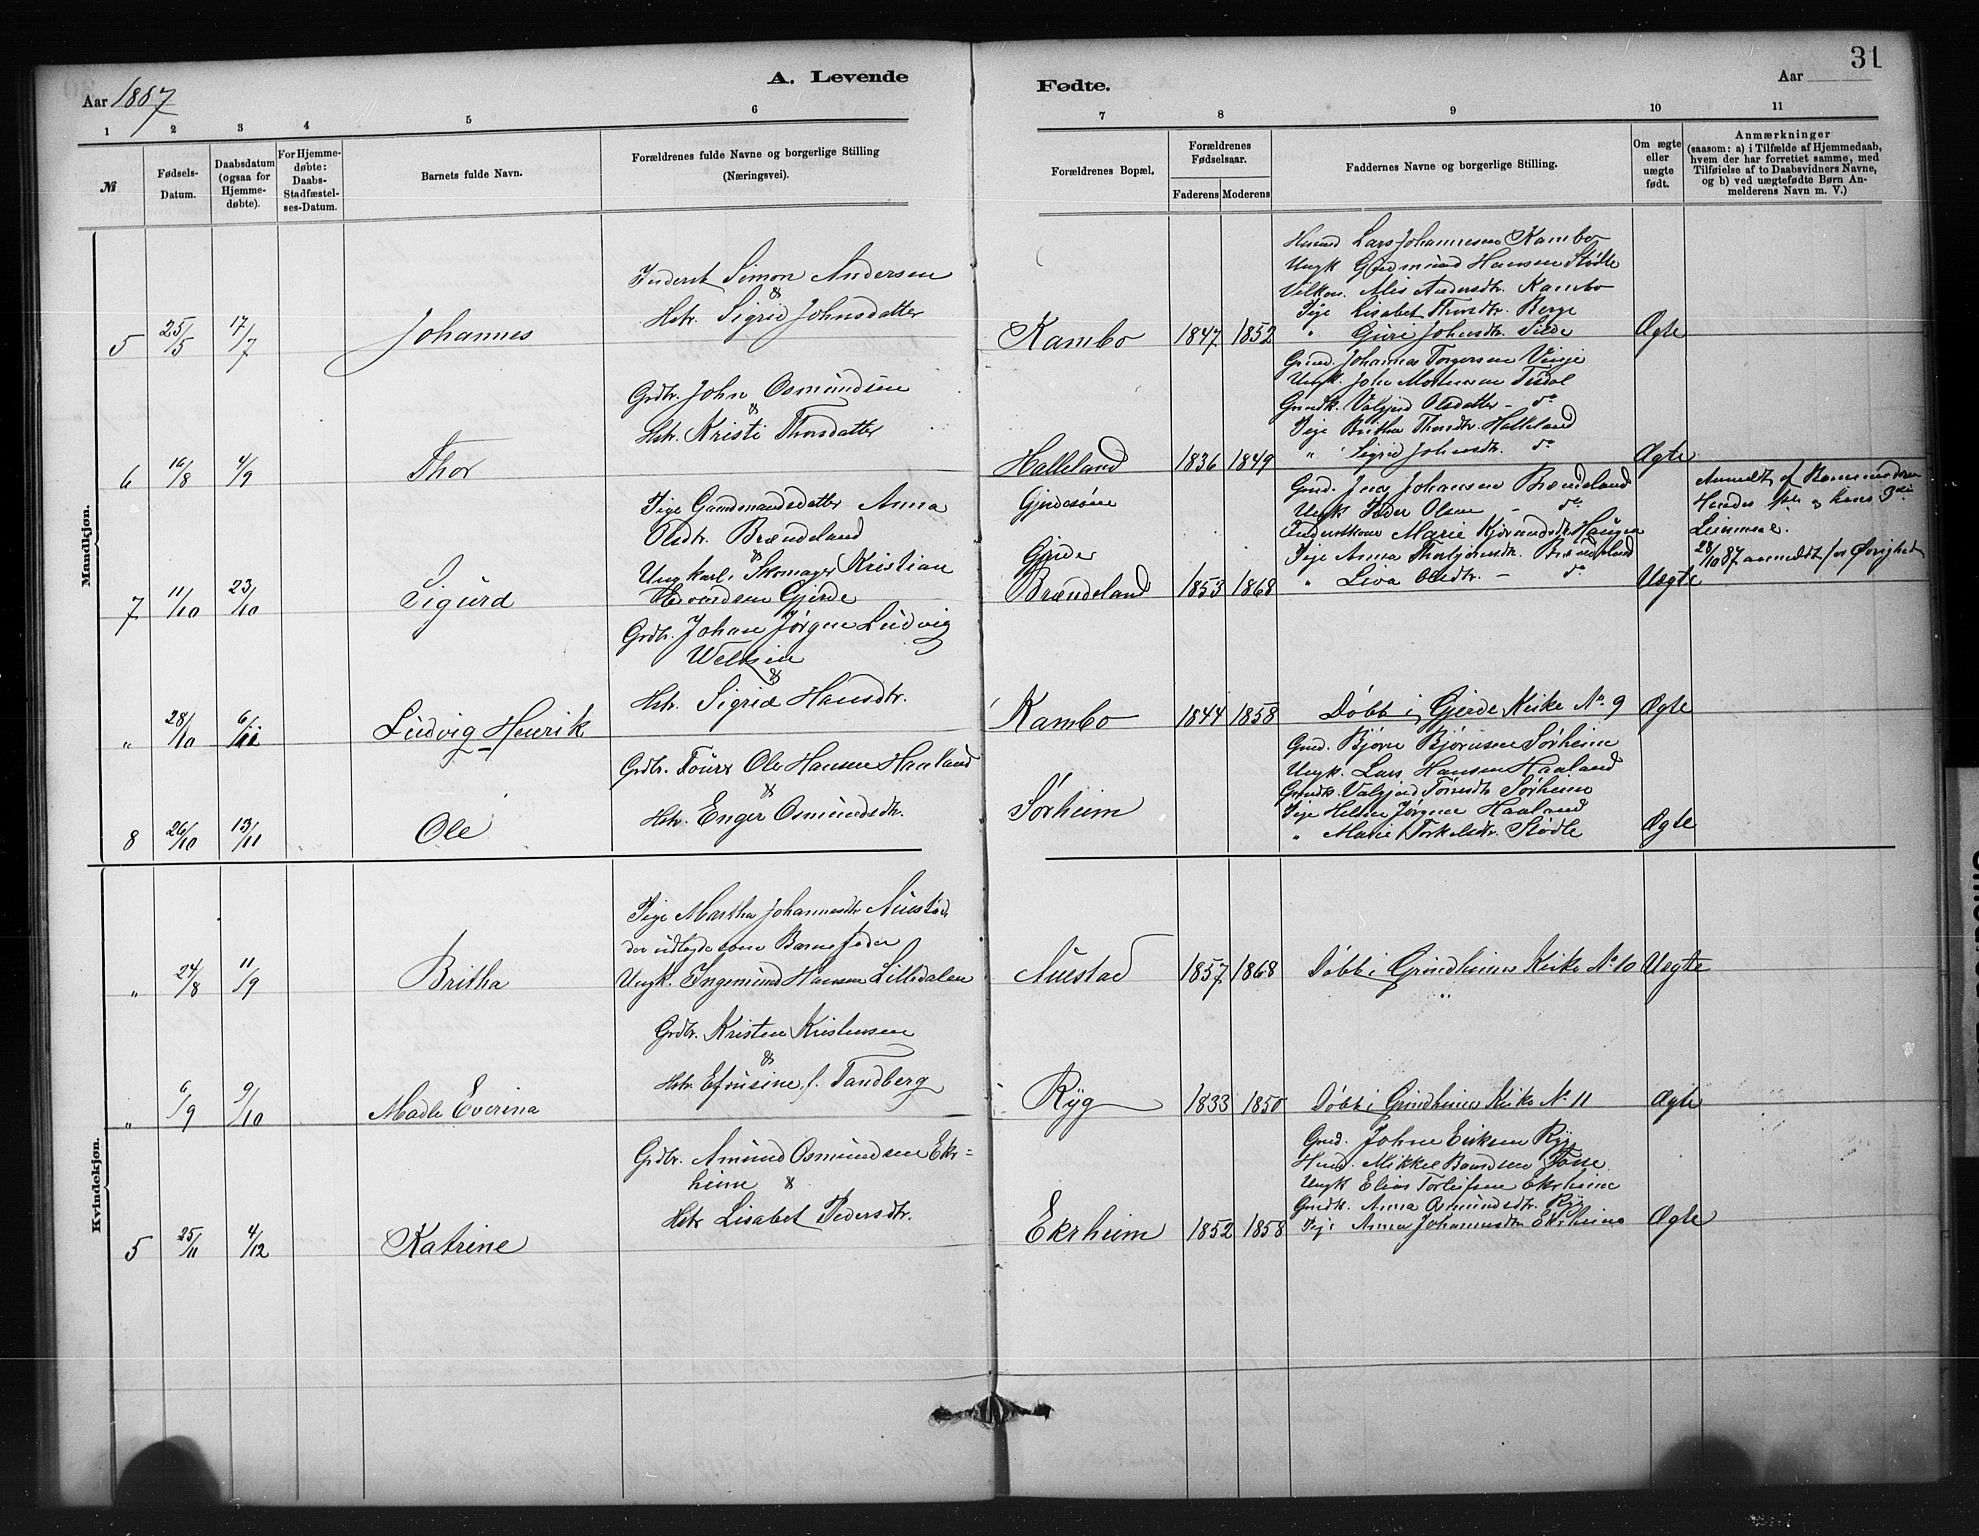 31
A. Levende
Fødte.
Aar 1887
Aar
1 2 3 4 5 6
7 8 9 10 11
№
Fødsels-
Datum.
Daabsdatum
(ogsaa for
Hjemme-
døbte).
For Hjemme-
døbte:
Daabs-
Stadfæstel-
ses-Datum.
Barnets fulde Navn.
Forældrenes fulde Navne og borgerlige Stilling
(Næringsvei).
Forældrenes Bopæl,
Forældrenes
Fødselsaar.
Faderens Moderens
Faddernes Navne og borgerlige Stilling.
Om ægte
eller
uægte
født.
Anmærkninger
(saasom: a) i Tilfælde af Hjemmedaab,
hvem der har forrettet samme, med
Tilføielse af to Daabsvidners Navne,
og b) ved uægtefødte Børn An-
melderens Navn m. V.)
Mandkjøn.
5 25/5 17/7 Johannes
Inderst Simon Andersen
&
Hstr. Sigrid Johnsdatter
Kambo 1847 1852
Husmd Lars Johannesen Kambo
Ungk Gudmund Hansen Stødle
Andersdtr. Kambo
Pige Lisabet Thorsdtr. Berge
" Guri Johnsdtr. Silde
Ægte
6 16/8 4/9 Thor
Grdbr. John Osmundsen
&
Hstr. Kristi Thorsdatter
Halleland 1836 1849
Gmd. Johannes Torgersen Vinje
Ungk. John Mortensen Tesdal
Gmdk. Valgjerd Olsdatter - do
Pige Britha Thorsdtr. Halleland
" Sigrid Johnsdtr. do
Ægte
7 11/10 23/10 Sigurd
Pige Gaardmandsdatter Anna
Olsdtr. Brændeland
&
Ungkarl, Skomager Kristian
Gjerde
Gjerde
Brændeland 1853 1868
Gmd. Johansen Brændeland
Ungk Peder Olsen - do
Marie
Pige Anna Thorbjørnsdtr. Brændeland
" Olsdtr. - do
Uægte
Anmeldt af Barnemoderen
28/10 87 anmeldt for Øvrighed
" 28/10 6/11 Ludvig Henrik
Grdbr. Johan Jørgen Ludvig
&
Hstr. Sigrid Hansdtr.
Kambo 1844 1858
Døbt i Gjerde Kirke No 9
Ægte
8 26/10 13/11 Ole
Grdbr. Ole Hansen Haaland
&
Hstr. Enger Osmundsdtr.
Sørheim
Gmd. Bjørn Bjørnsen Sørheim
Ungk. Lars Hansen Haaland
Gmdk. Valgjerd Sørheim
Pige Helene Jørgine Haaland
" Marie Torkelsdtr. Stødle
Ægte
Kvindekjøn.
" 24/8 11/9 Britha
Pige Martha Johannesdtr. Austad
der udlagde som Barnefader
Ungk. Ingemund Hansen Litledalen
Austad 1857 1868
Døbt i Grindheims Kirke No 10
Uægte
" 6/9 9/10 Madle Everina
Grdbr. Kristen Kristensen
&
Hstr. Efrusine f. Tandberg
Ryg 1833 1850
Døbt i Grindheims Kirke No 11
Ægte
5 25/11 4/12 Katrine
Grdbr. Amund Osmundsen Ekr-
heim &
Hstr Lisabet Pedersdtr.
Ekrheim 1852 1858
Gmd. Johan Eriksen Ryg
Husmd. Mikkel Baardsen Fosse
Ungk Elias Torleifsen Ekrheim
Gmdk. Anna Osmundsdtr. Ryg
Pige Anna Johannesdtr. Ekrheim
Ægte